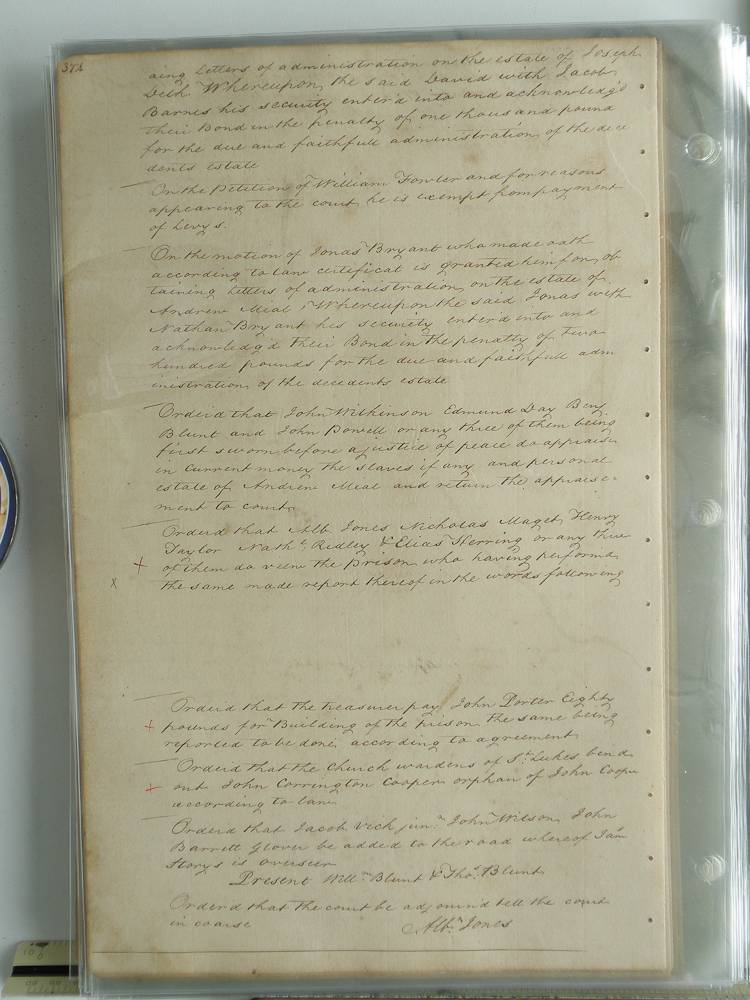 374
aing Letters of administration on the estate of Joseph
Delk Whereupon the said David with Jacob
Barnes his security enter'd into and acknowledg'd
their Bond in the penalty of one thousand pound
for the due and faithfull administration of the dece
dents estate
On the Petition of William Fowler and for reasons
appearing to the court he is exempt from payment
of Levys.
On the motion of Jonas Bryant who made oath
according to law certificat is granted him for ob
taining Letters of administration on the estate of
Andrew Meal Whereupon the said Jonas with
Nathan Bryant his security enter'd into and
acknowledg'd their Bond in the penalty of two
hundred pounds for the due and faithfull adm
inistration of the decedents estate
Orderd that John Wilkinson Edmund Day Benj.
Blunt and John Powell or any three of them being
first sworn before a justice of peace do appraise
in Current money the slaves if any and personal
estate of Andrew Meal and return the appraise
ment to court
Orderd that Alb. Jones Nicholas Maget Henry
Taylor Nath.l Ridley & Elias Herring or any three
of them do view the Prison who having performd
the same made report thereof in the words following
Orderd that the treasurer pay John Porter Eighty
pounds for Building of the prison the same being
reported to be done according to agreement
Orderd that the Church wardens of St. Lukes bend
out John Corrington Cooper orphan of John Cooper
according to law
Orderd that Jacob Vick jun.r John Wilson John
Barrett Glover be added to the road whereof Jam
Storys is overseer
Present Will.m Blunt & Tho.s Blunt
Orderd that the court be adjournd till the court
in coarse
Alb.n Jones